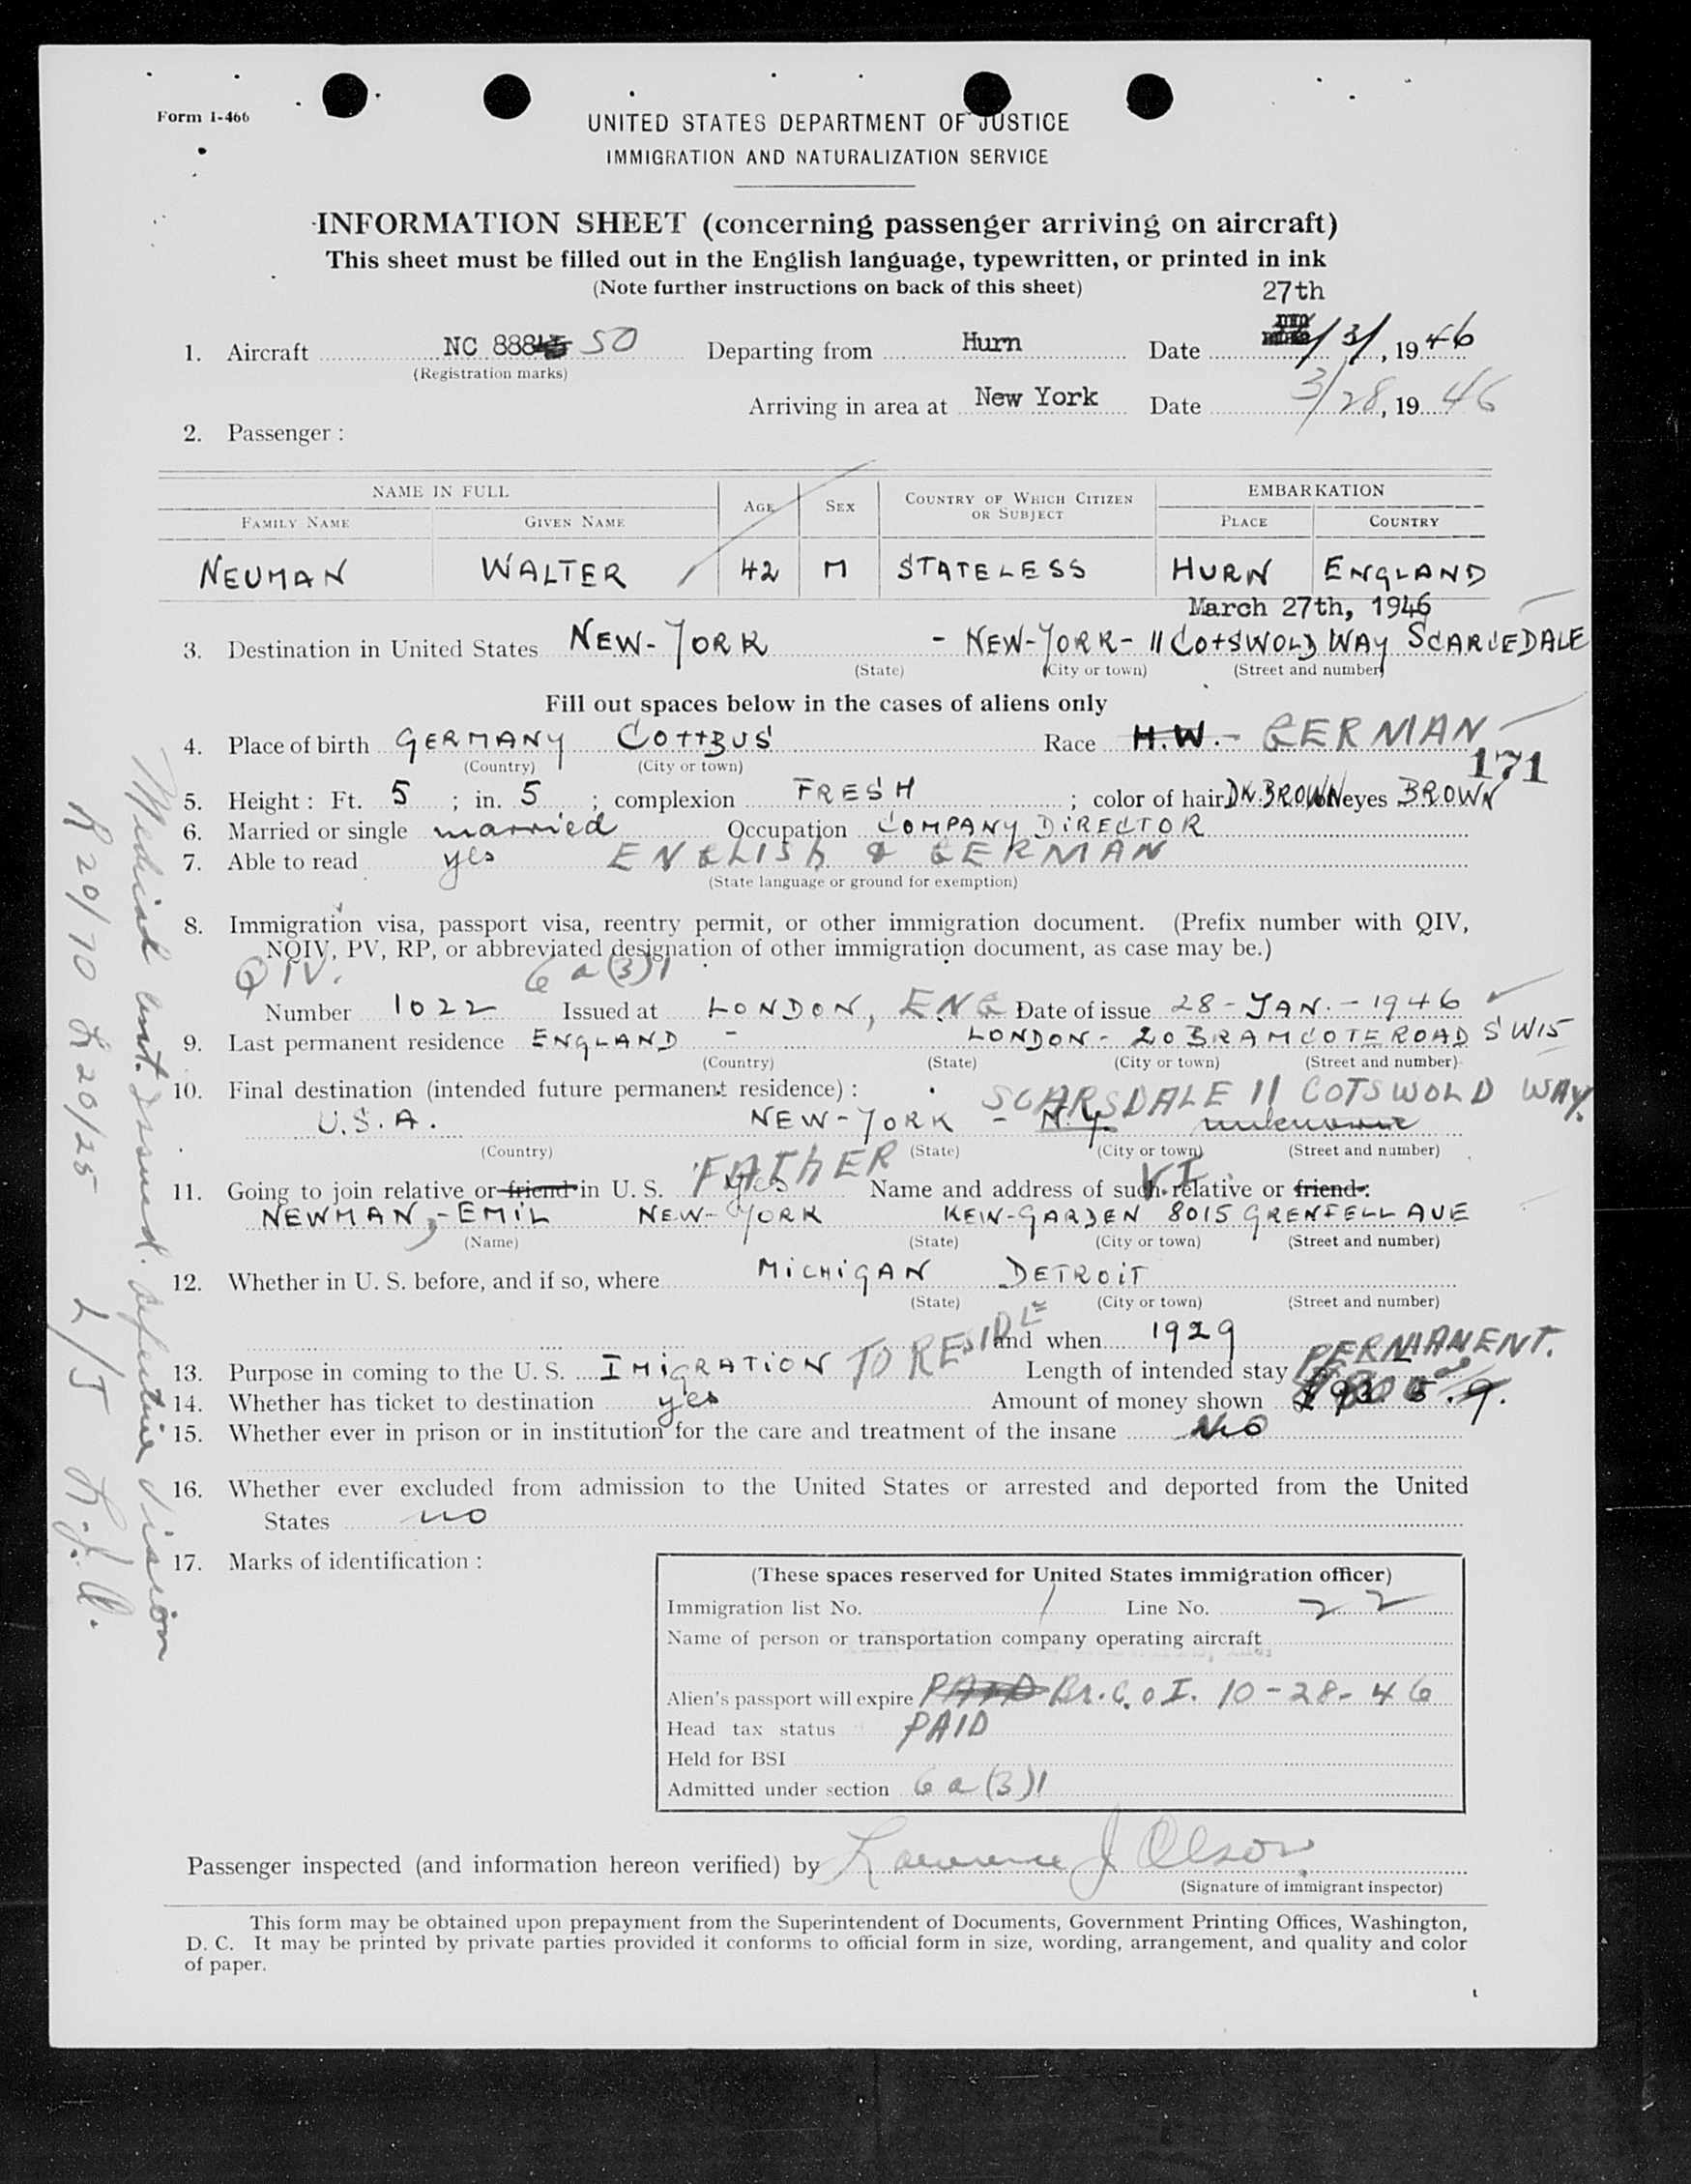 Form I-466
UNITED STATES DEPARTMENT OF JUSTICE
IMMIGRATION AND NATURALIZATION SERVICE
INFORMATION SHEET (concerning passenger arriving on aircraft)
This sheet must be filled out in the English language, typewritten, or printed in ink
(Note further instructions on back of this sheet)
27th
1. Aircraft NC 888 50 Departing from Hurn Date /3/, 1946
(Registration marks)
Arriving in area at New York Date 3/28, 1946
2. Passenger :
NAME IN FULL AGE SEX COUNTRY OF WHICH CITIZEN OR SUBJECT EMBARKATION
FAMILY NAME GIVEN NAME PLACE COUNTRY
NEUMAN WALTER 42 M STATELESS HURN ENGLAND
March 27th, 1946
3. Destination in United States NEW-YORK - NEW-YORK- 11 COTSWOLD WAY SCARCEDALE
(State) (City or town) (Street and number)
Fill out spaces below in the cases of aliens only
4. Place of birth GERMANY COTTBUS Race H.W. - GERMAN
(Country) (City or town)
171
5. Height : Ft. 5 ; in. 5 ; complexion FRESH ; color of hair DK.BROWN eyes BROWN
6. Married or single married Occupation COMPANY DIRECTOR
7. Able to read yes ENGLISH & GERMAN
(State language or ground for exemption)
8. Immigration visa, passport visa, reentry permit, or other immigration document. (Prefix number with QIV,
NQIV, PV, RP, or abbreviated designation of other immigration document, as case may be.)
QIV. 6 a (3) 1
Number 1022 Issued at LONDON, ENG Date of issue 28 - JAN. - 1946
9. Last permanent residence ENGLAND - LONDON - 20 BRAMCOTE ROAD SW15
(Country) (State) (City or town) (Street and number)
10. Final destination (intended future permanent residence) :
SCARSDALE 11 COTSWOLD WAY.
U.S.A. NEW-YORK - N.Y. unknown
(Country) (State) (City or town) (Street and number)
FATHER VI
11. Going to join relative or friend in U. S. yes Name and address of such relative or friend :
NEWMAN, - EMIL NEW-YORK KEW-GARDEN 8015 GRENFELL AVE
(Name) (State) (City or town) (Street and number)
12. Whether in U. S. before, and if so, where MICHIGAN DETROIT
(State) (City or town) (Street and number)
and when 1929
13. Purpose in coming to the U. S. IMIGRATION TO RESIDE Length of intended stay PERMANENT.
14. Whether has ticket to destination yes Amount of money shown
15. Whether ever in prison or in institution for the care and treatment of the insane NO
16. Whether ever excluded from admission to the United States or arrested and deported from the United
States no
17. Marks of identification :
(These spaces reserved for United States immigration officer)
Immigration list No. 1 Line No. 22
Name of person or transportation company operating aircraft
Alien's passport will expire PAID Br. C. o I. 10-28-46
Head tax status PAID
Held for BSI
Admitted under section 6 a (3) 1
Passenger inspected (and information hereon verified) by Lawrence J Olson
(Signature of immigrant inspector)
This form may be obtained upon prepayment from the Superintendent of Documents, Government Printing Offices, Washington,
D. C. It may be printed by private parties provided it conforms to official form in size, wording, arrangement, and quality and color
of paper.
Medical cert. Issued. defective vision
R 20/70 L 20/25 L/J